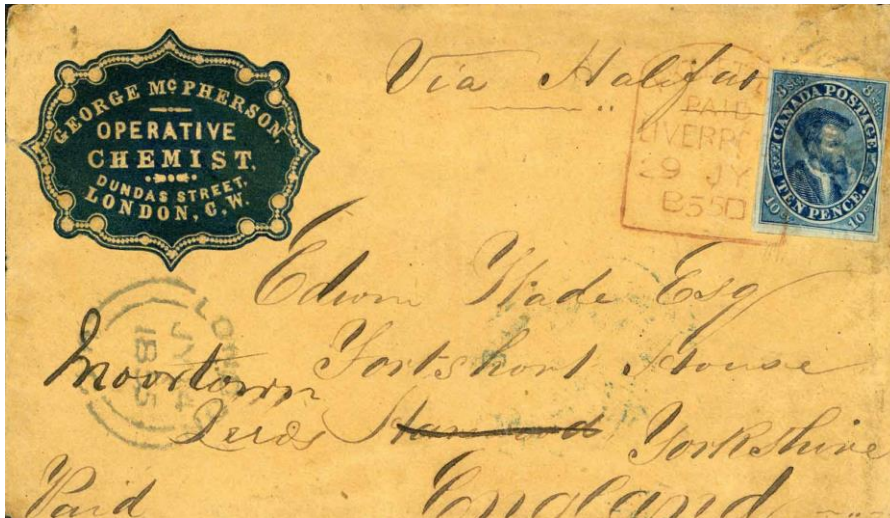 GEORGE McPHERSON,
OPERATIVE
CHEMIST,
DUNDAS STREET,
LONDON, C.W.
Via Halifax
PAID
LIVERPO
29 JY
B55D
8 STG. 8 STG.
CANADA POSTAGE
TEN PENCE.
10 10
LONDON
JY 14
1855
Edwin Wade Esq
House
Moortown
Leeds Yorkshire
Paid England